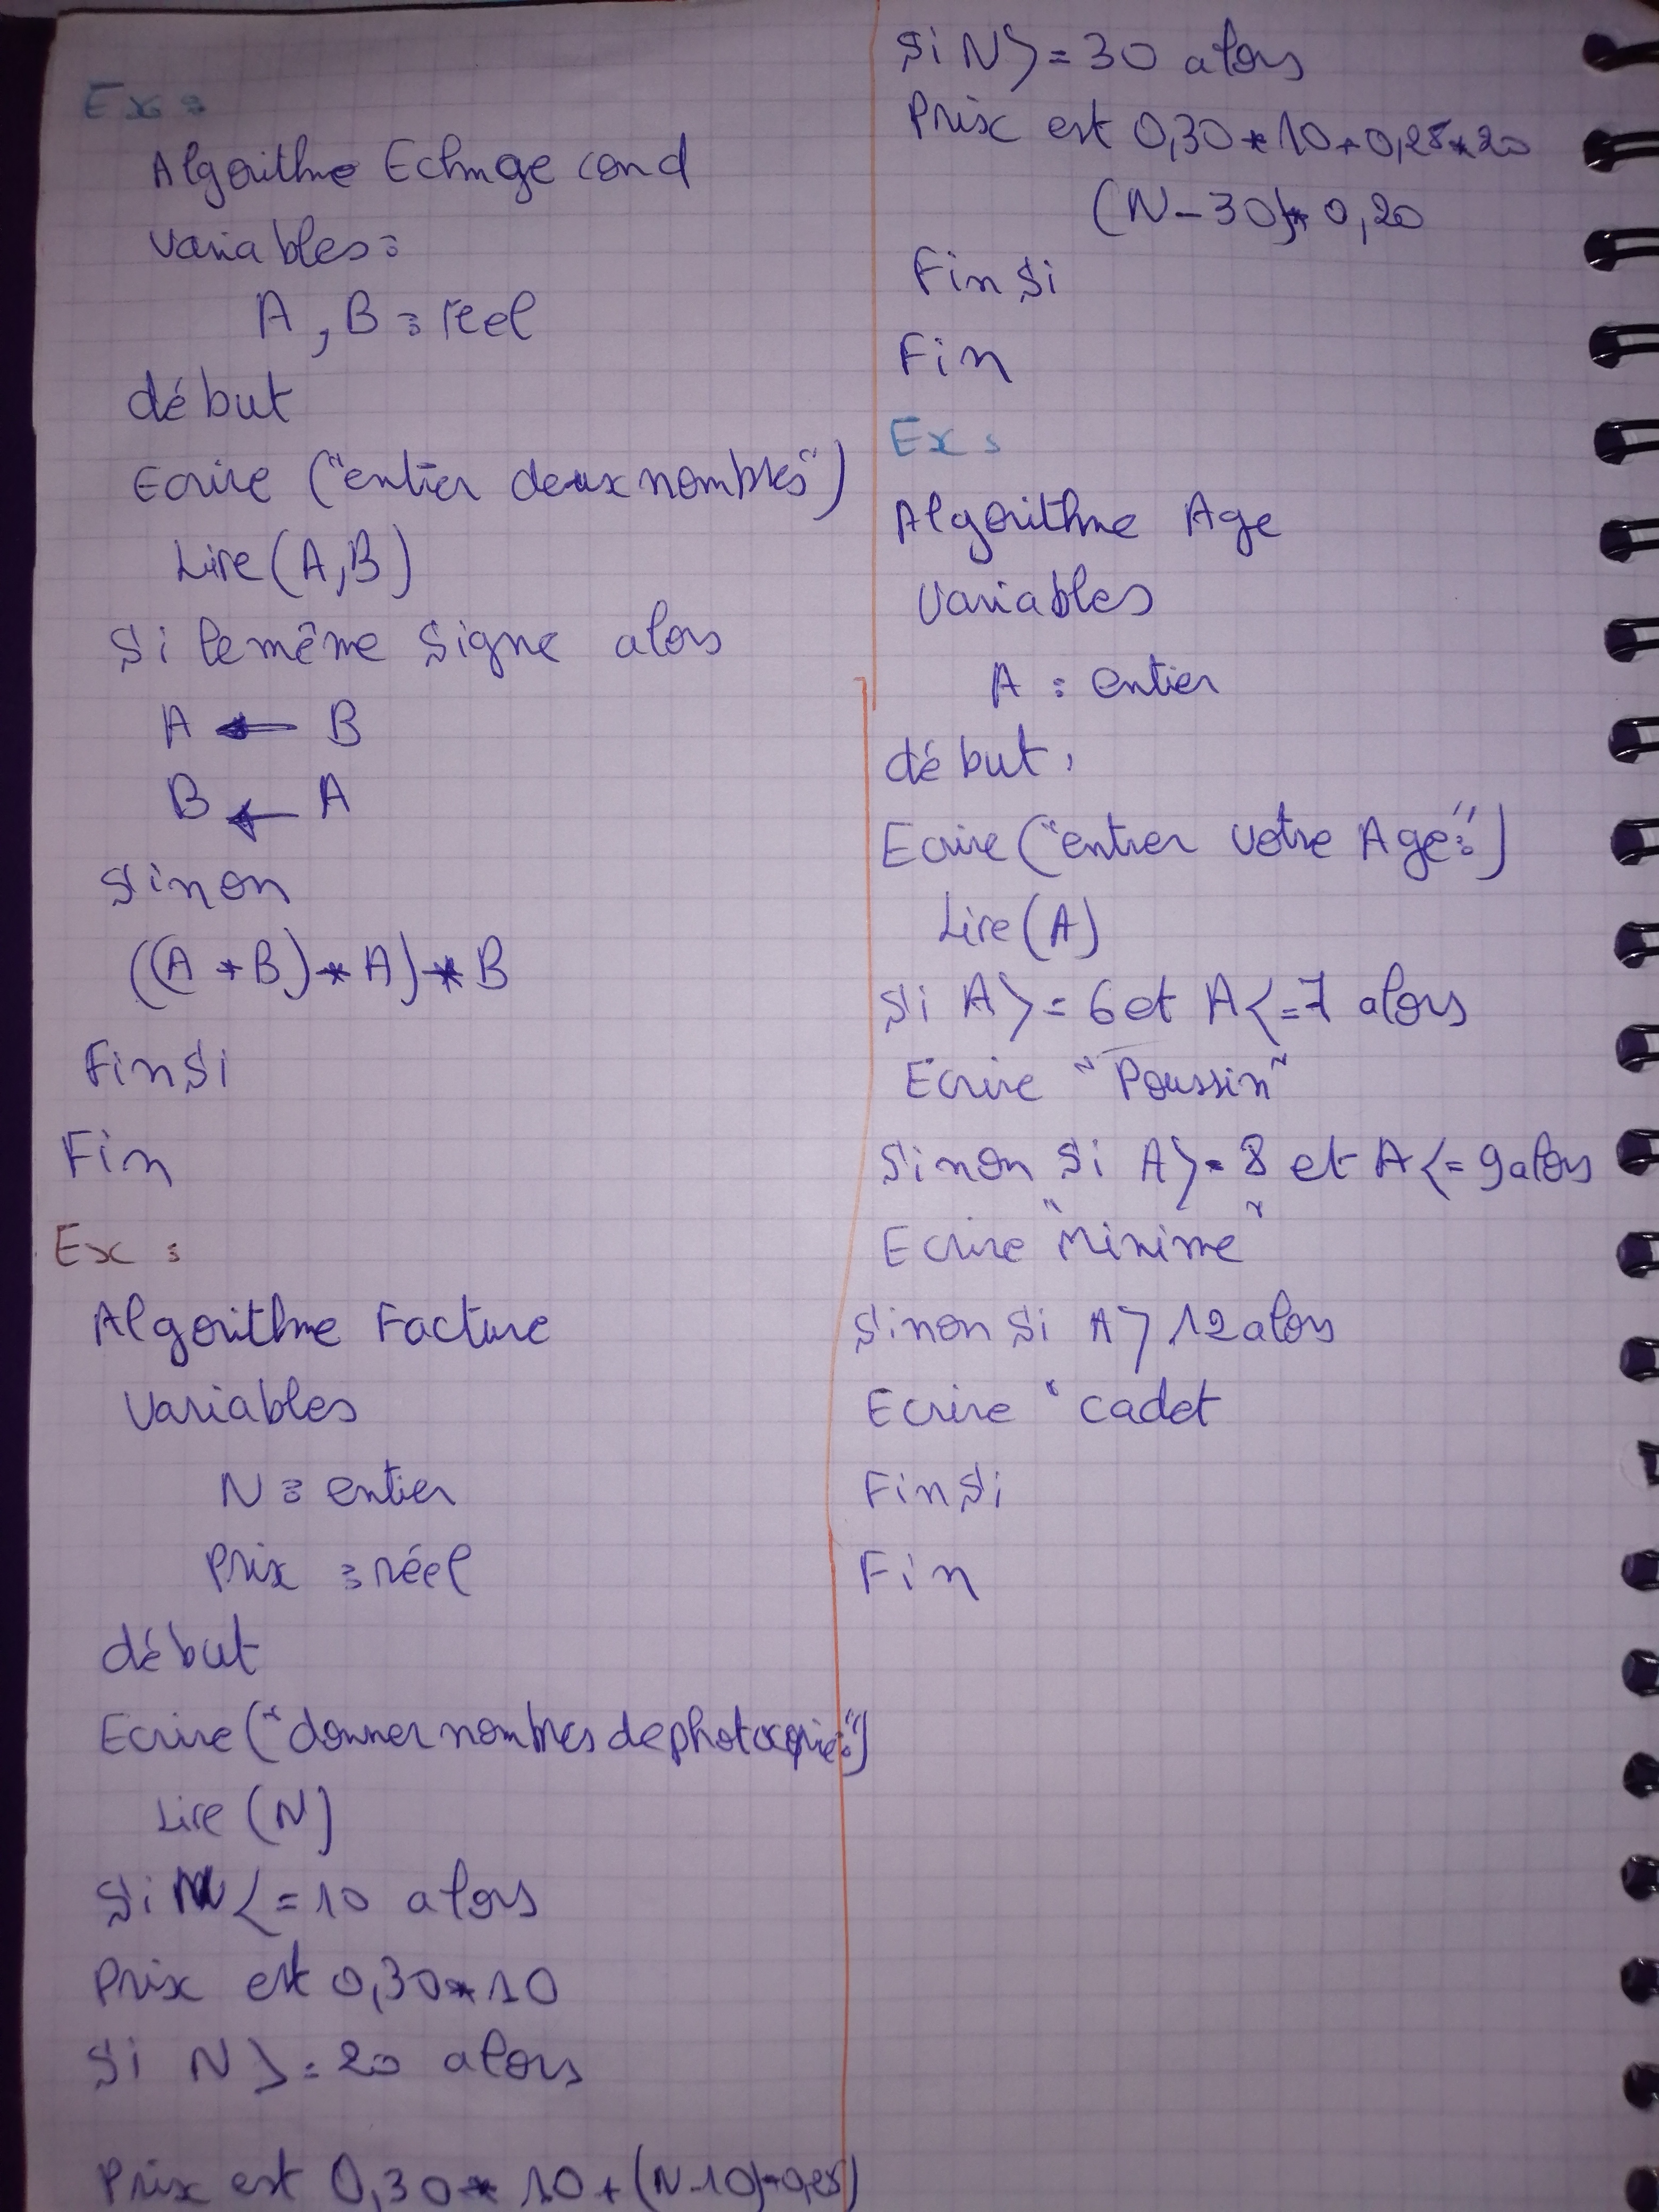 Ex :
Algorithme Echnge cond
Variables :
A, B : réel
début
Ecrire ("entier deux nombres")
Lire (A, B)
Si le même signe alors
A ← B
B ← A
Sinon
((A + B) * A) * B
Fin Si
Fin
Ex :
Algorithme Facture
Variables
N : entier
Prix : réel
début
Ecrire ("donner nombres de photocopie :")
Lire (N)
Si N <= 10 alors
Prix est 0,30 * 10
Si N >= 20 alors
Prix est 0,30 * 10 + (N - 10) * 0,25)
Si N >= 30 alors
Prix est 0,30 * 10 + 0,25 * 20
(N - 30) * 0,20
Fin Si
Fin
Ex :
Algorithme Age
Variables
A : entier
début :
Ecrire ("entrer votre Age :")
Lire (A)
Si A >= 6 et A <= 7 alors
Ecrire "Poussin"
Sinon Si A >= 8 et A <= 9 alors
Ecrire "Minime"
Sinon Si A > 12 alors
Ecrire "cadet
Fin Si
Fin